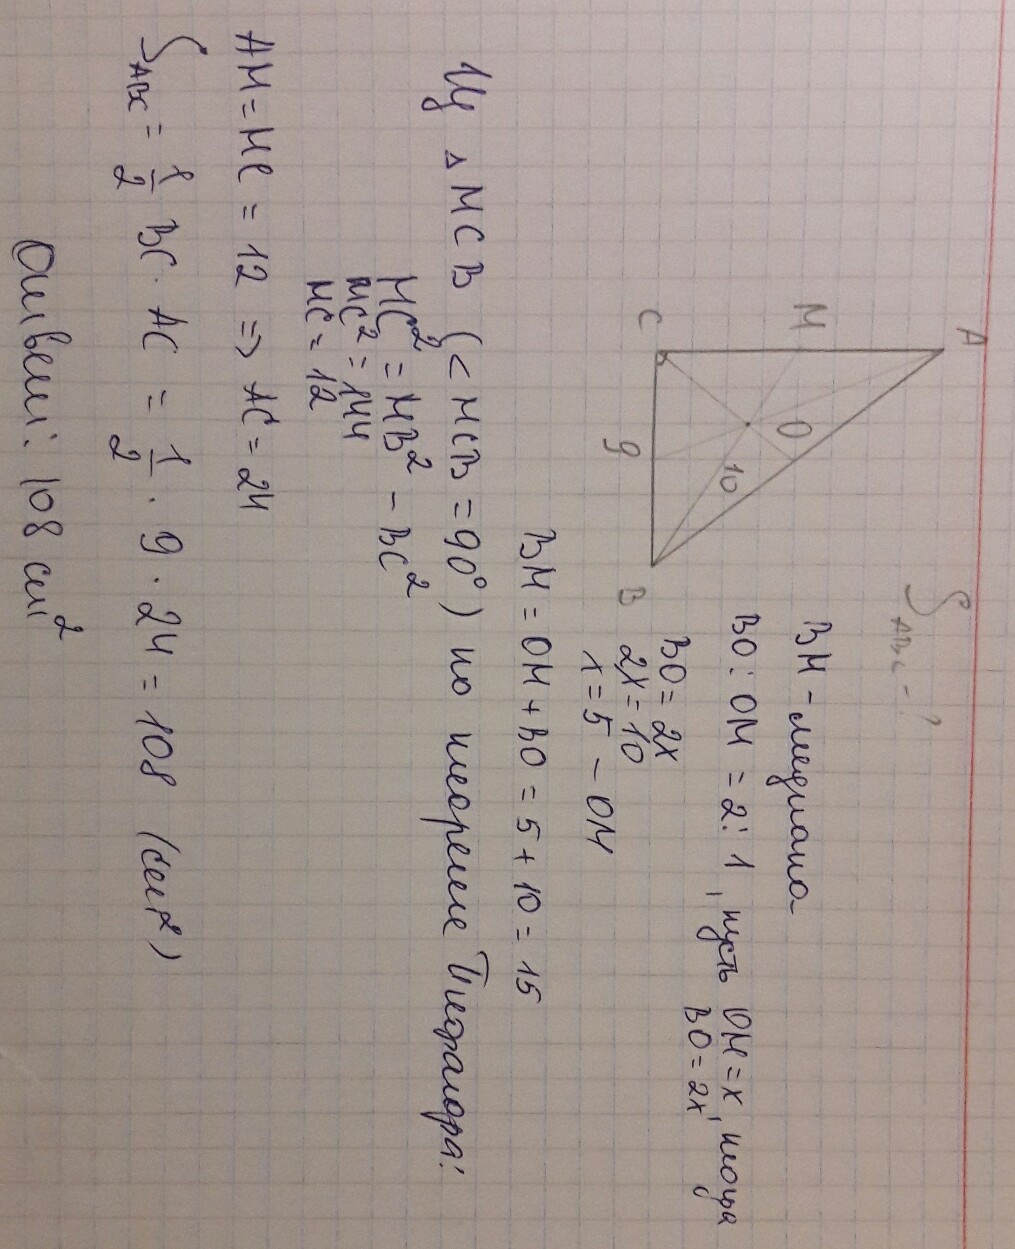 S ABC - ?
A
M
C
O
10
9
B
BM - медиана
BO : OM = 2 : 1 , пусть OM = x, тогда
BO = 2x
BO = 2x
2x = 10
x = 5 - OM
BM = OM + BO = 5 + 10 = 15
Из △ MCB (< MCB = 90°) по теореме Пифагора:
MC² = MB² - BC²
MC² = 144
MC = 12
AM = MC = 12 => AC = 24
S ABC = 1/2 BC · AC = 1/2 · 9 · 24 = 108 (см²)
Ответ: 108 см²